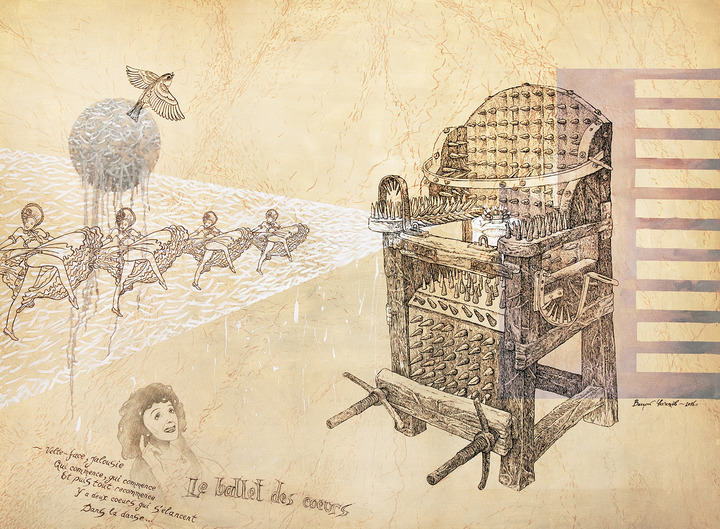 ~ Volte-face, jalousie
Qui commence, qui commence
Et puis tout recommence
Y a deux coeurs qui s'élancent
Dans la danse...
Le ballet des coeurs
2016